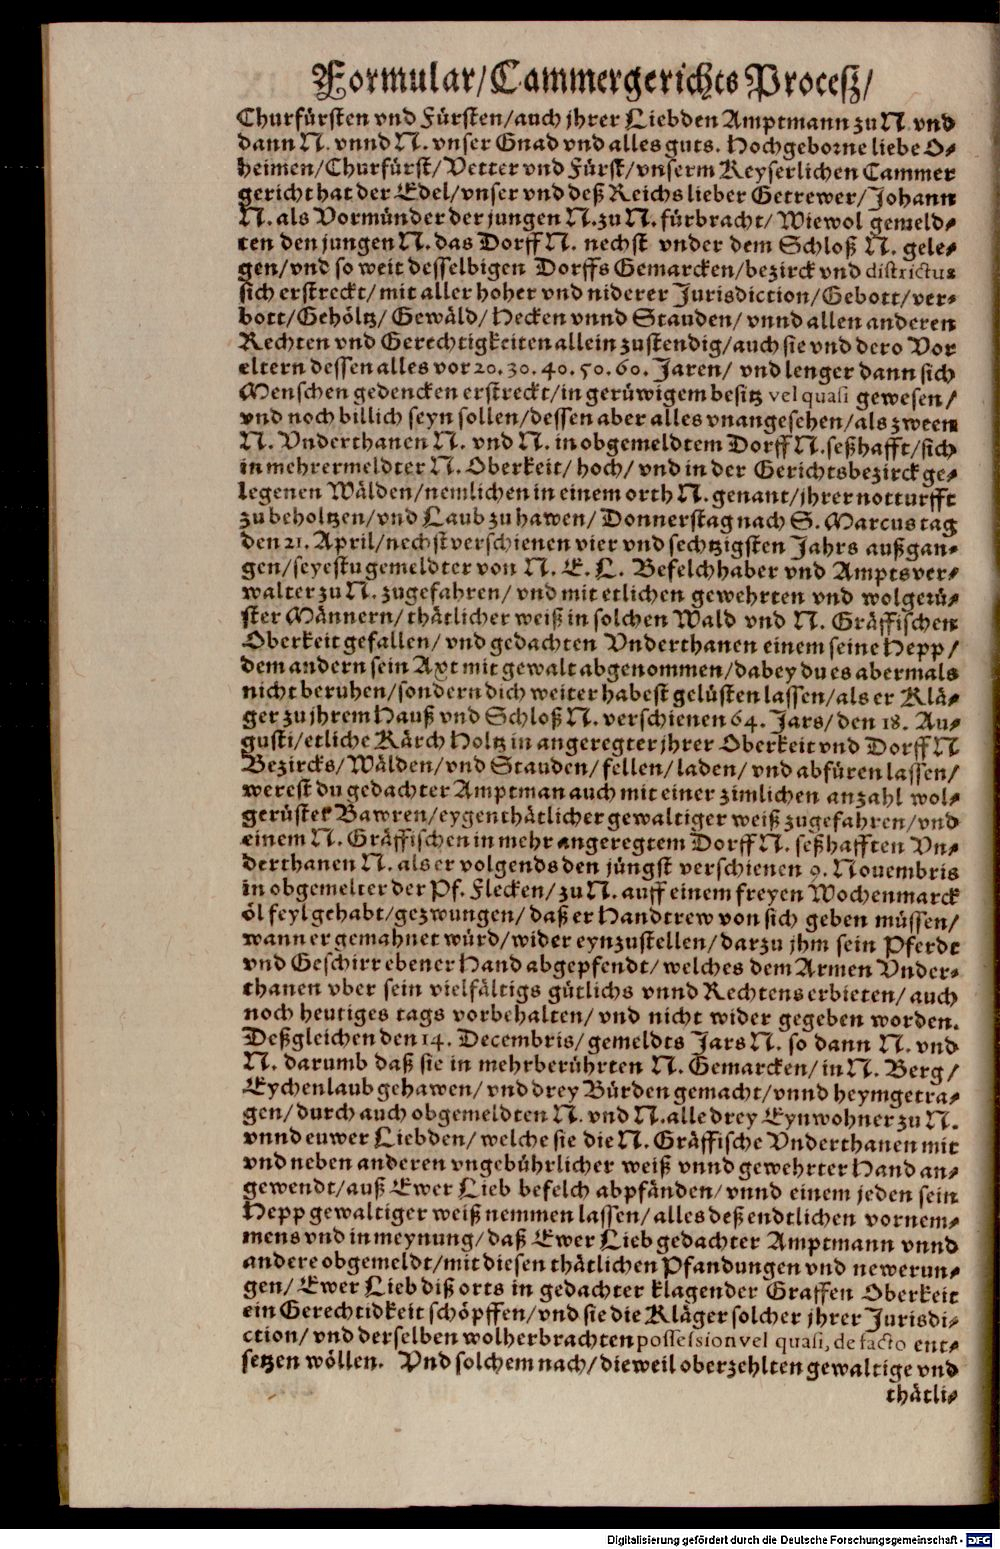 Formular/Cammergerichts Proceß/
Churfürsten vnd Fürsten/auch jhrer Liebden Amptmann zu N. vnd
dann N. vnnd N. vnser Gnad vnd alles guts. Hochgeborne liebe O-
heimen/Churfürst/Vetter vnd Fürst/vnserm Keyserlichen Cammer
gericht hat der Edel/vnser vnd deß Reichs lieber Getrewer/Johann
N. als Vormünder der jungen N. zu N. fürbracht/Wiewol gemeld-
ten den jungen N. das Dorff N. nechst vnder dem Schloß N. gele-
gen/vnd so weit desselbigen Dorffs Gemarcken/bezirck vnd districtus
sich erstreckt/mit aller hoher vnd niderer Jurisdiction/Gebott/ver-
bott/Gehöltz/Gewäld/Hecken vnnd Stauden/vnnd allen anderen
Rechten vnd Gerechtigkeiten allein zustendig/auch sie vnd dero Vor
eltern dessen alles vor 20. 30. 40. 50. 60. Jaren/vnd lenger dann sich
Menschen gedencken erstreckt/in gerüwigem besitz vel quasi gewesen/
vnd noch billich seyn sollen/dessen aber alles vnangesehen/als zween
N. Vnderthanen N. vnd N. in obgemeldtem Dorff N. seßhafft/sich
in mehrermeldter N. Oberkeit/hoch/vnd in der Gerichtsbezirck ge-
legenen Wälden/nemlichen in einem orth N. genant/jhrer notturfft
zu beholtzen/vnd Laub zu hawen/Donnerstag nach S. Marcus tag
den 21. April/nechst verschienen vier vnd sechtzigsten Jahrs außgan-
gen/seyestu gemeldter von N. E. L. Befelchhaber vnd Amptsver-
walter zu N. zugefahren/vnd mit etlichen gewehrten vnd wolgerü-
ster Männern/thätlicher weiß in solchen Wald vnd N. Gräffischen
Oberkeit gefallen/vnd gedachten Vnderthanen einem seine Hepp/
dem andern sein Axt mit gewalt abgenommen/dabey du es abermals
nicht beruhen/sondern dich weiter habest gelüsten lassen/als er Klä-
ger zu jhrem Hauß vnd Schloß N. verschienen 64. Jars/den 18. Au-
gusti/etliche Kärch Holtz in angeregter jhrer Oberkeit vnd Dorff N
Bezircks/Wälden/vnd Stauden/fellen/laden/vnd abfüren lassen/
werest du gedachter Amptman auch mit einer zimlichen anzahl wol-
gerüster Bawren/eygenthätlicher gewaltiger weiß zugefahren/vnd
einem N. Gräffischen in mehr angeregtem Dorff N. seßhafften Vn-
derthanen N. als er volgends den jüngst verschienen 9. Nouembris
in obgemelter der Pf. Flecken/zu N. auff einem freyen Wochenmarck
öl feyl gehabt/gezwungen/daß er Handtrew von sich geben müssen/
wann er gemahnet würd/wider eynzustellen/darzu jhm sein Pferdt
vnd Geschirr ebener Hand abgepfendt/welches dem Armen Vnder-
thanen vber sein vielfältigs gütlichs vnnd Rechtens erbieten/auch
noch heutiges tags vorbehalten/vnd nicht wider gegeben worden.
Deßgleichen den 14. Decembris/gemeldts Jars N. so dann N. vnd
N. darumb daß sie in mehrberührten N. Gemarcken/in N. Berg/
Eychenlaub gehawen/vnd drey Bürden gemacht/vnnd heymgetra-
gen/durch auch obgemeldten N. vnd N. alle drey Eynwohner zu N.
vnnd euwer Liebden/welche sie die N. Gräffische Vnderthanen mit
vnd neben anderen vngebührlicher weiß vnnd gewehrter Hand an-
gewendt/auß Ewer Lieb befelch abpfänden/vnnd einem jeden sein
Hepp gewaltiger weiß nemmen lassen/alles deß endtlichen vornem-
mens vnd in meynung/daß Ewer Lieb gedachter Amptmann vnnd
andere obgemeldt/mit diesen thätlichen Pfandungen vnd newerun-
gen/Ewer Lieb diß orts in gedachter klagender Graffen Oberkeit
ein Gerechtidkeit schöpffen/vnd sie die Kläger solcher jhrer Jurisdi-
ction/vnd derselben wolherbrachten possession vel quasi, de facto ent-
setzen wöllen. Vnd solchem nach/dieweil oberzehlten gewaltige vnd
thätli-
Digitalisierung gefördert durch die Deutsche Forschungsgemeinschaft - DFG